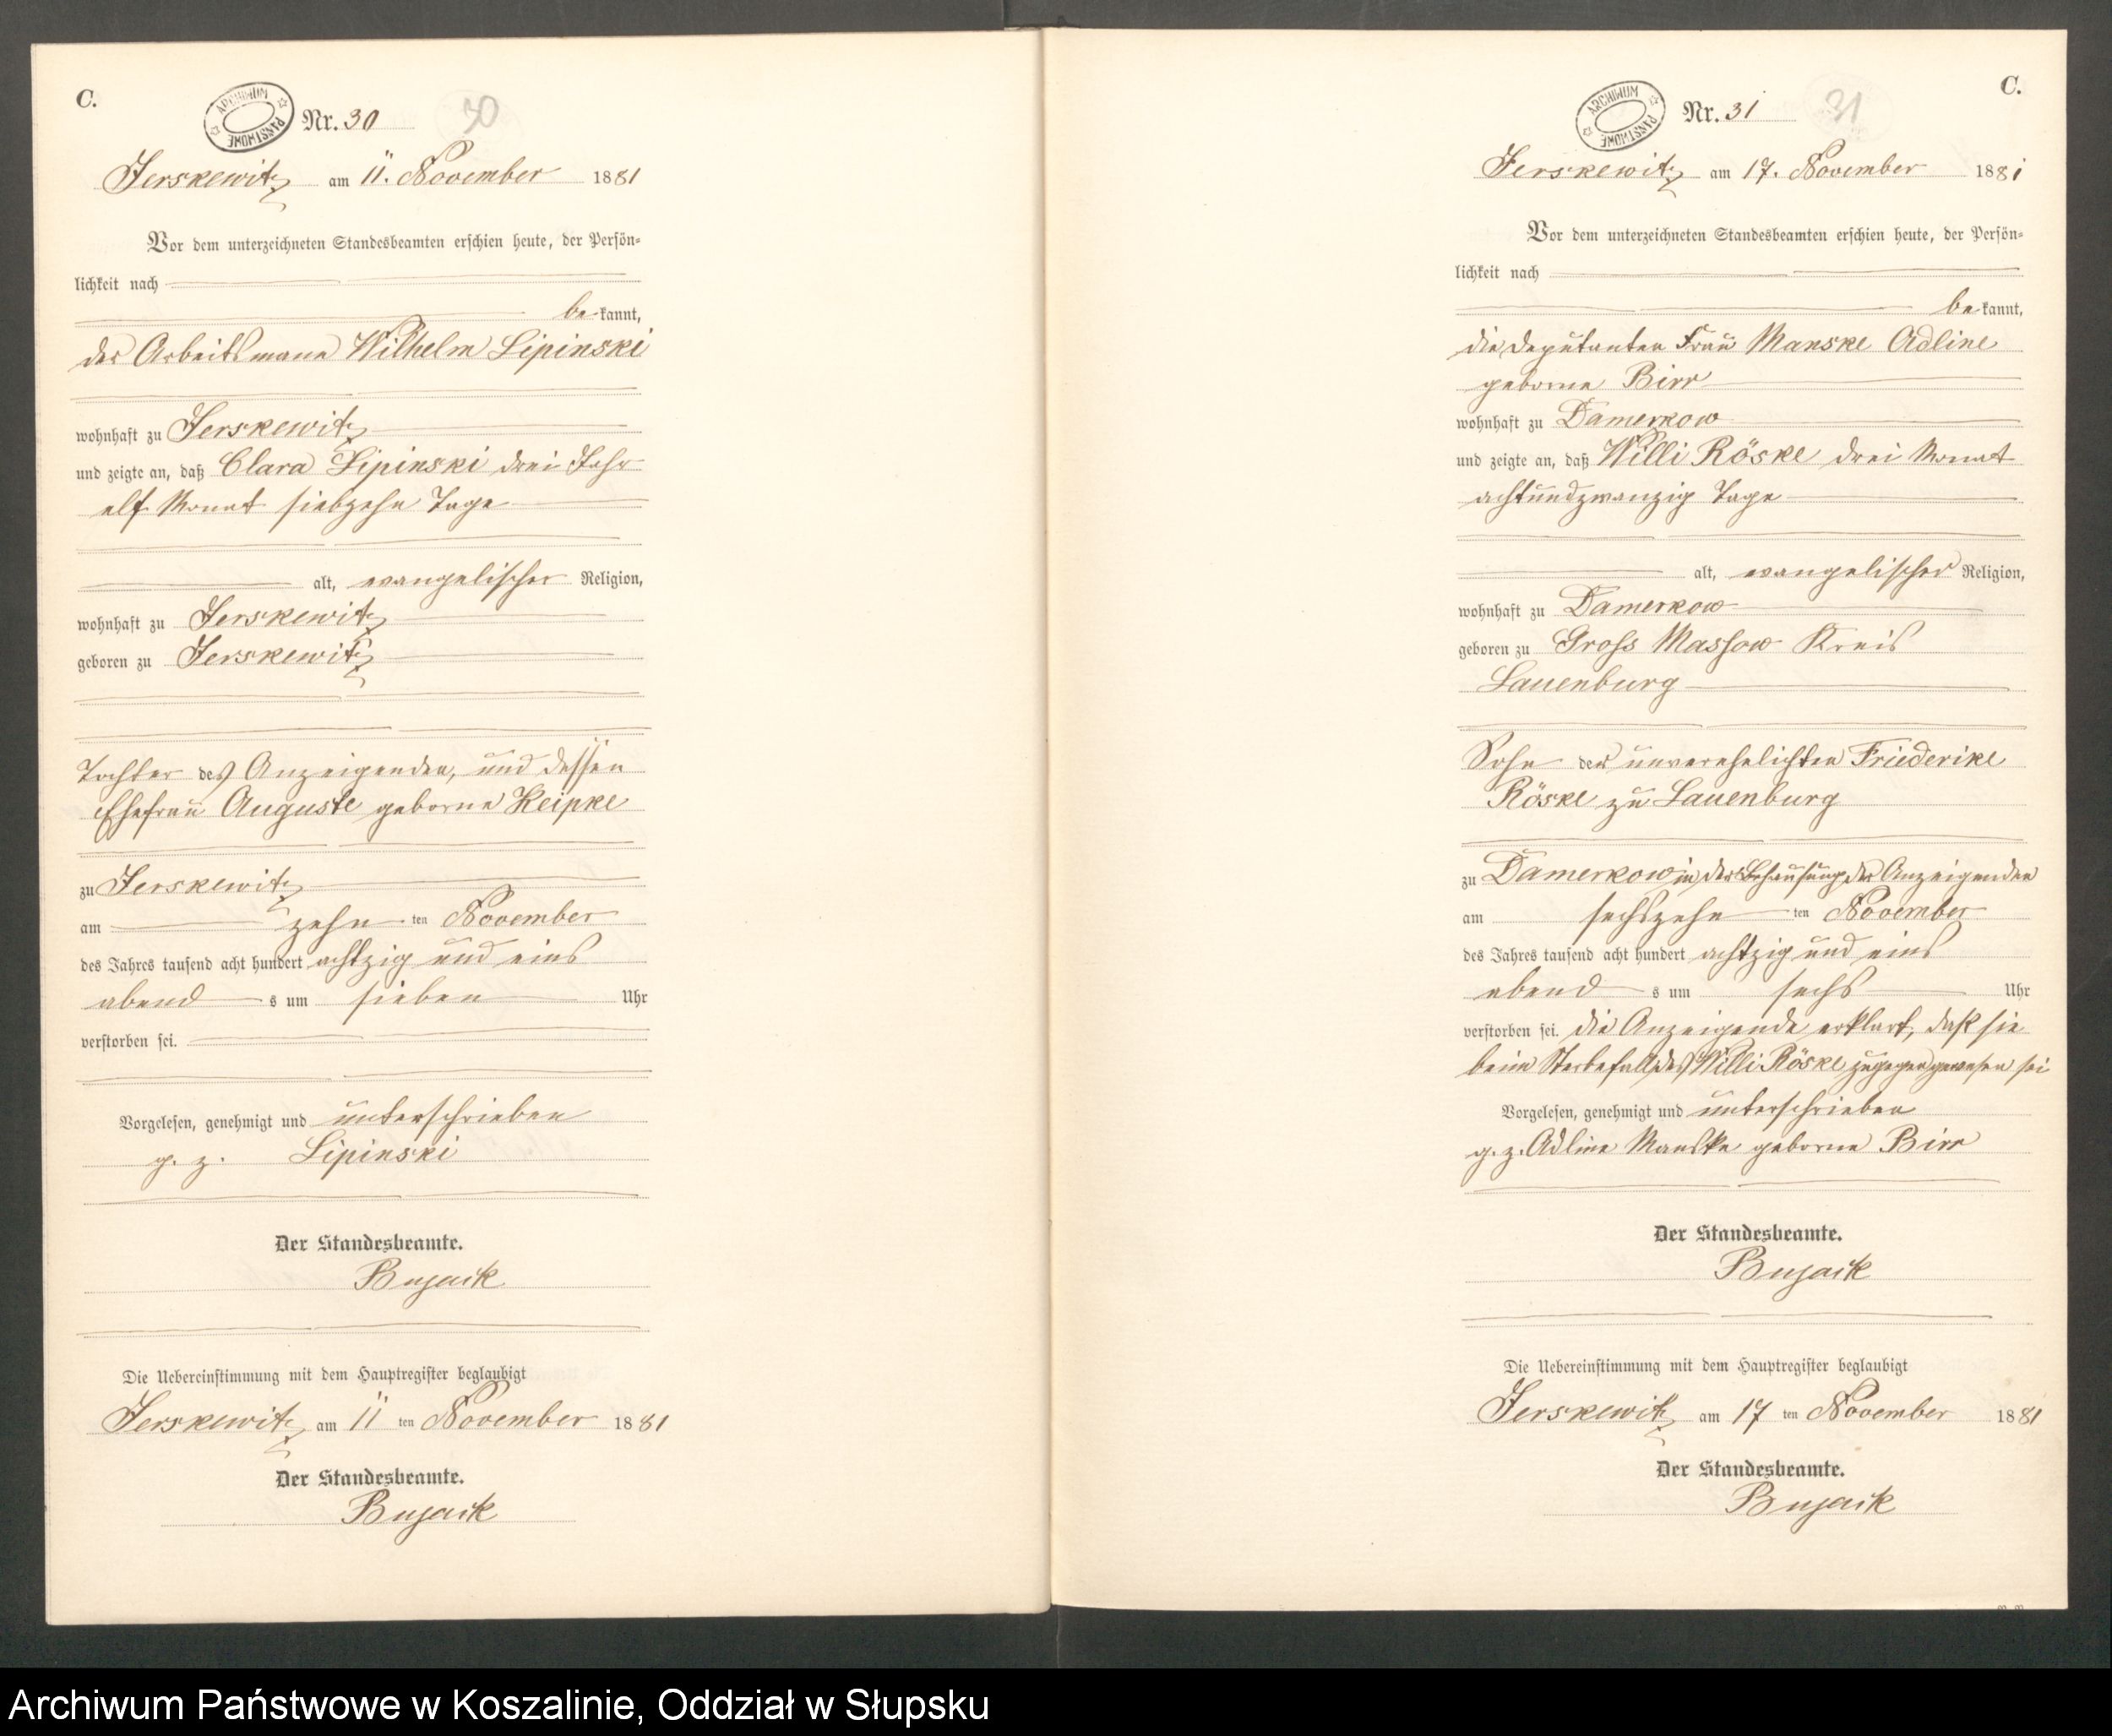 C.
ARCHIWUM PAŃSTWOWE
Nr. 30
30
Jerskewitz am 11. November 1881
Vor dem unterzeichneten Standesbeamten erschien heute, der Persön-
lichkeit nach
be kannt,
der Arbeitsmann Wilhelm Lipinski
wohnhaft zu Jerskewitz
und zeigte an, daß Clara Lipinski drei Jahr
elf Monat siebzehn Tage
alt, evangelischer Religion,
wohnhaft zu Jerskewitz
geboren zu Jerskewitz
Tochter des Anzeigenden, und dessen
Ehefrau Auguste geborne Keipke
zu Jerskewitz
am zehn ten November
des Jahres tausend acht hundert achtzig und eins
abend s um sieben Uhr
verstorben sei.
Vorgelesen, genehmigt und unterschrieben
g. z. Lipinski
Der Standesbeamte.
Bujack
Die Uebereinstimmung mit dem Hauptregister beglaubigt
Jerskewitz am 11 ten November 1881
Der Standesbeamte.
Bujack
C.
ARCHIWUM PAŃSTWOWE
Nr. 31
31
Jerskewitz am 17. November 1881
Vor dem unterzeichneten Standesbeamten erschien heute, der Persön-
lichkeit nach
be kannt,
die Deputanten Frau Manske Adline
geborne Birr
wohnhaft zu Damerkow
und zeigte an, daß Willi Röske drei Monat
achtundzwanzig Tage
alt, evangelischer Religion,
wohnhaft zu Damerkow
geboren zu Gross Massow Kreis
Lauenburg
Sohn der unverehelichten Friederike
Röske zu Lauenburg
zu Damerkow in der Behausung der Anzeigenden
am sechszehn ten November
des Jahres tausend acht hundert achtzig und eins
abend s um sechs Uhr
verstorben sei. die Anzeigende erklart, daß sie
beim Sterbefall des Willi Röske zugegen gewesen sei
Vorgelesen, genehmigt und unterschrieben
g. z. Adline Manske geborne Birr
Der Standesbeamte.
Bujack
Die Uebereinstimmung mit dem Hauptregister beglaubigt
Jerskewitz am 17 ten November 1881
Der Standesbeamte.
Bujack
Archiwum Państwowe w Koszalinie, Oddział w Słupsku